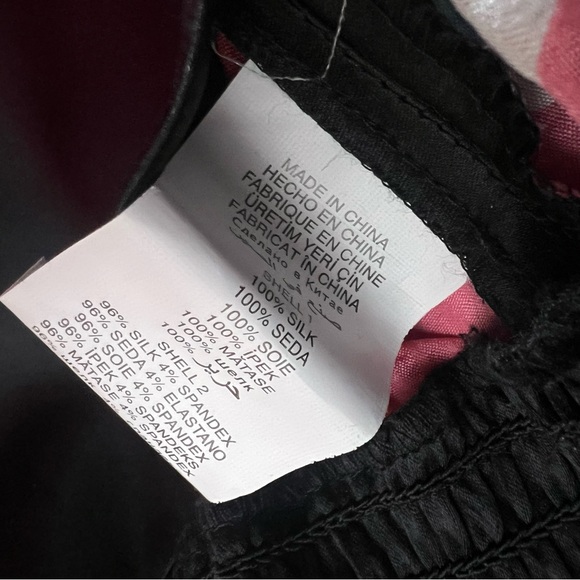 MADE IN CHINA
HECHO EN CHINA
FABRIQUE EN CHINE
ÜRETİM YERİ ÇİN
FABRICAT ÎN CHINA
Сделано в Китае
SHELL 1
100% SILK
100% SEDA
100% SOIE
100% İPEK
100% MATASE
100%
100% حرير
SHELL 2
96% SILK 4% SPANDEX
96% SEDA 4% ELASTANO
96% SOIE 4%
96% İPEK 4% SPANDEKS
96% MATASE 4% SPANDEX